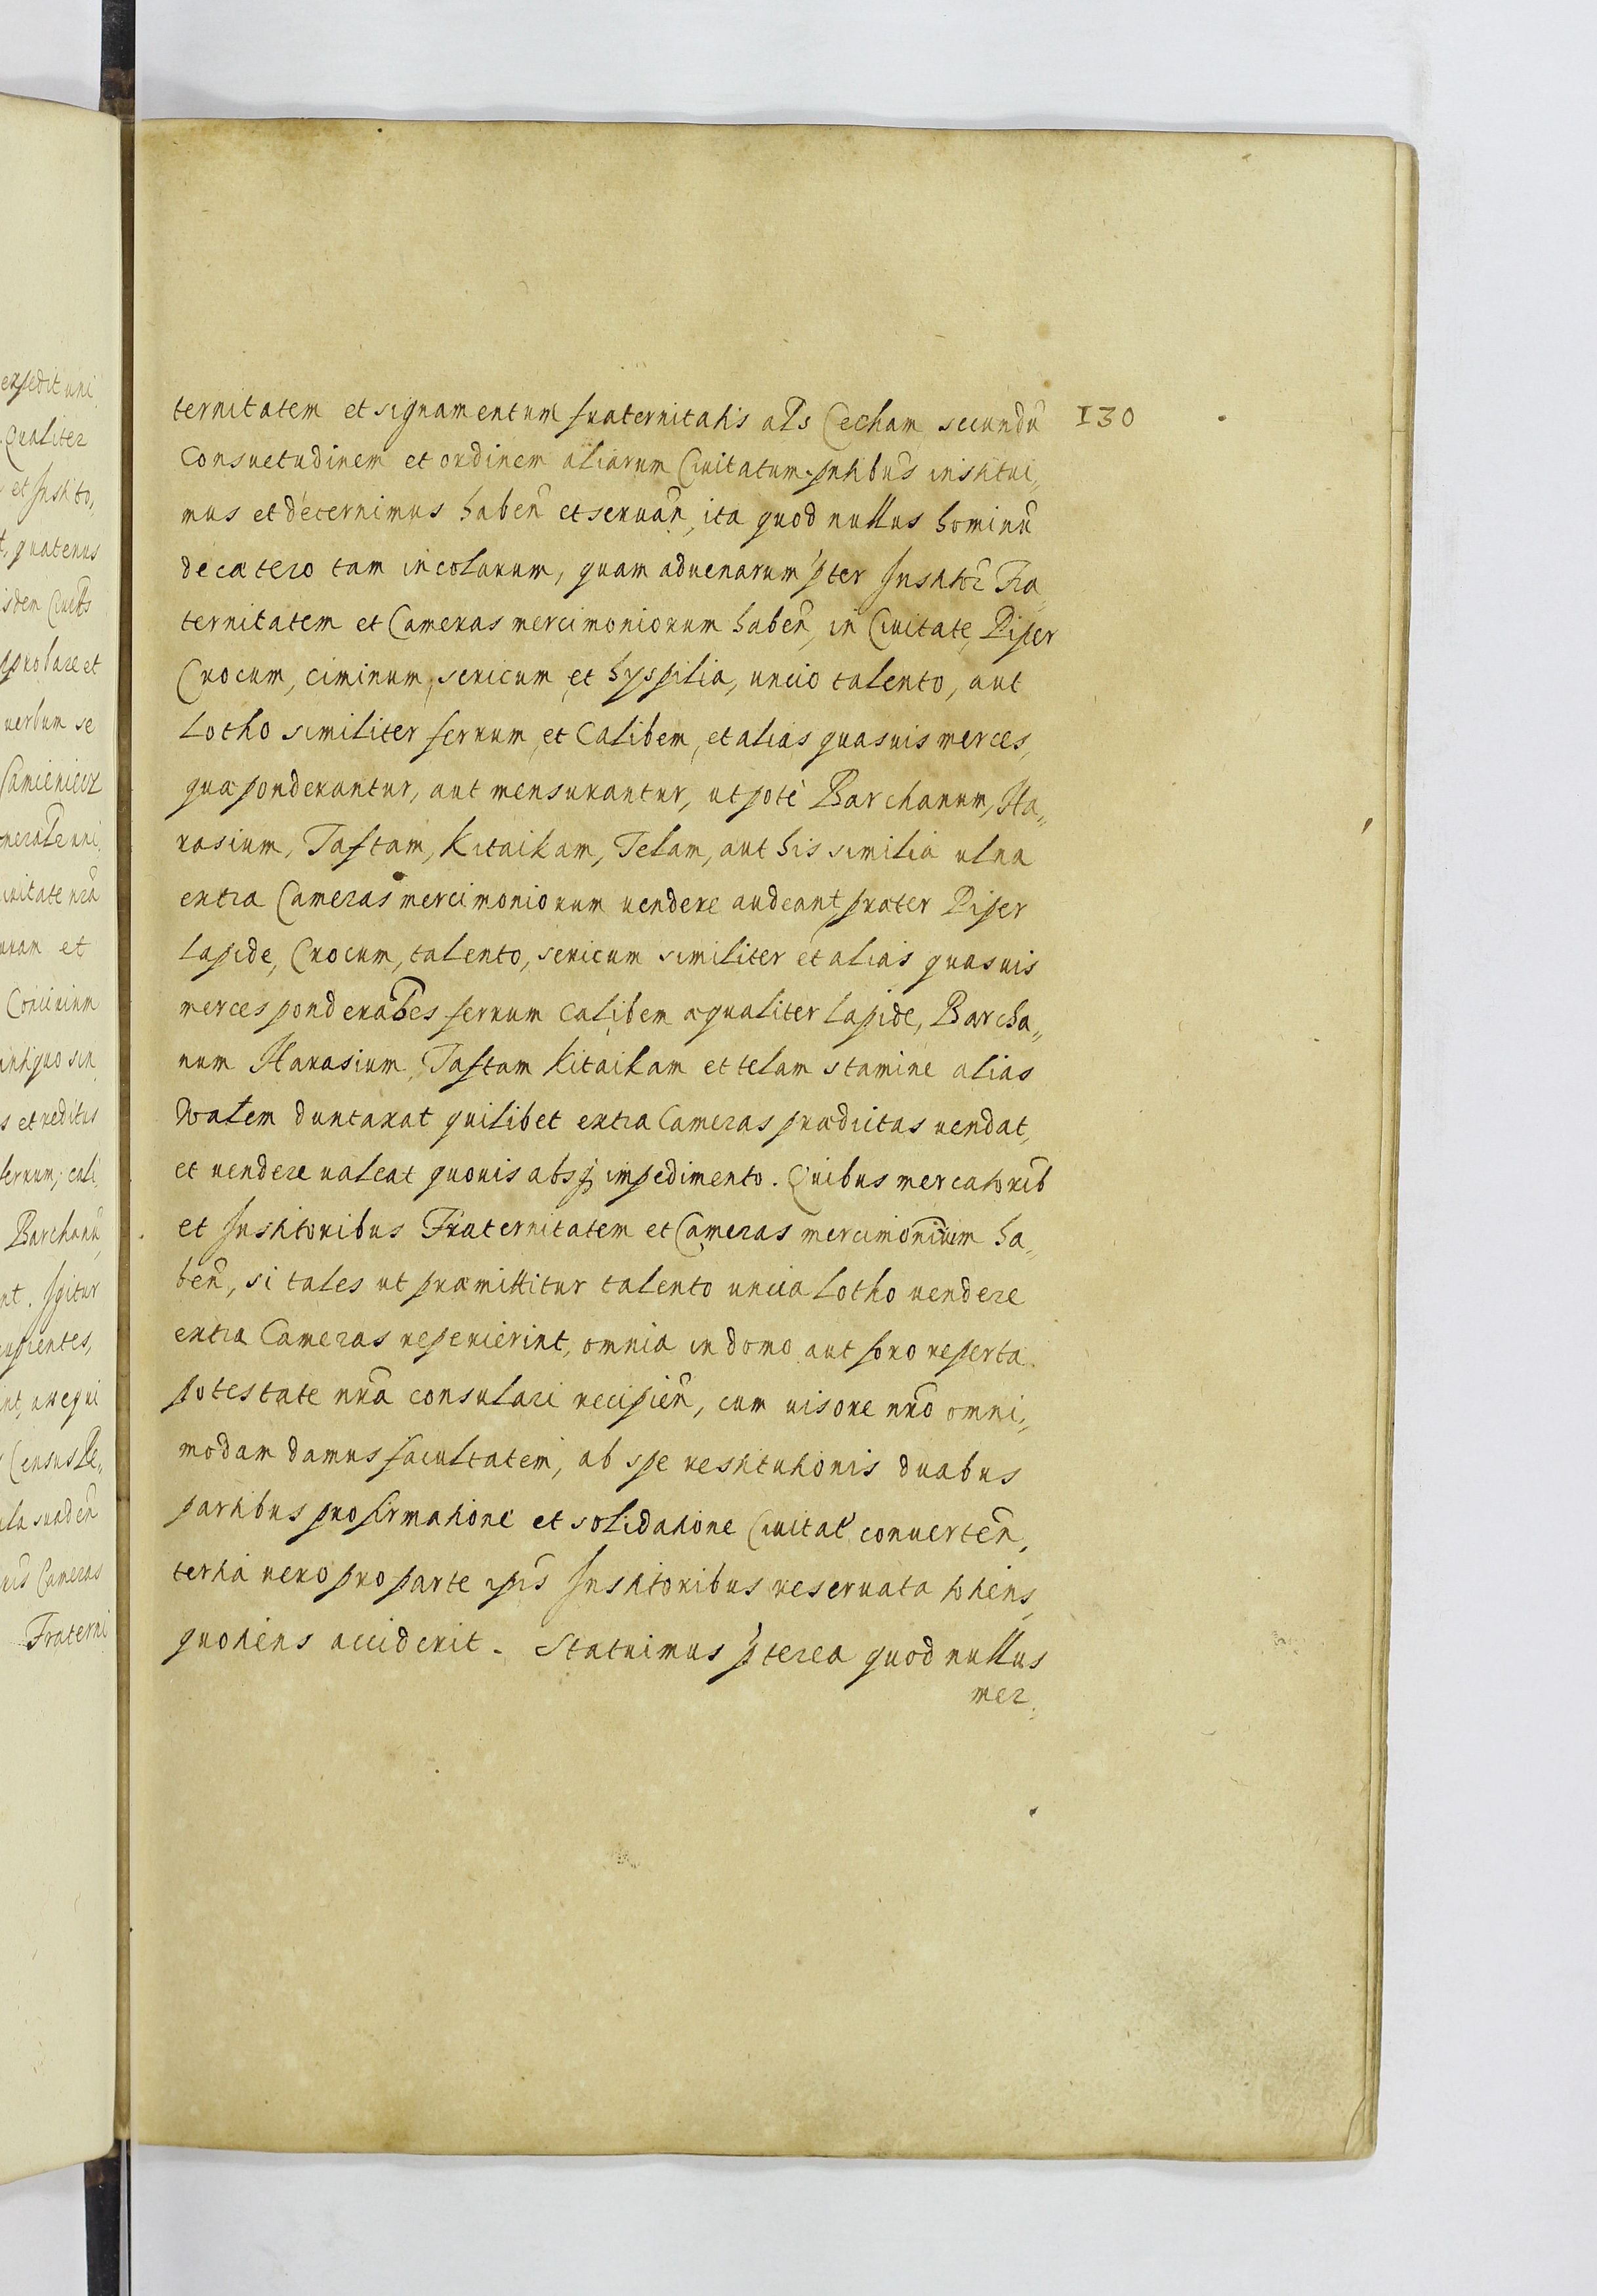 expedit uni
Qualiter
et Instito„
t, quatenus
isdem Civitts
pprobare et
verbum se
Camieniecz
merate uni
ivitate nrã
uram et
Concivium
antiquo sin
s et reditus
ferrum, cali
Barchanũ
nt. Igitur
cupientes,
int, aut qui
Census Re„
ula suadeñ
ris Cameras
Fraterni
130
ternitatem et signamentum fraternitatis als Cecham secundũ
Consuetudinem et ordinem aliarum Civitatum pntibus institui„
mus et decernimus habeñ et servañ, ita quod nullus hominũ
de cætero tam incolarum, quam advenarum pter Instito2 Fra
ternitatem et Cameras mercimoniorum habeñ, in Civitate, Piper
Crocum, ciminum, sericum et hyspilia, uncio talento, aut
Lotho similiter ferrum, et Calibem, et alias quasvis merces,
quæ ponderantur, aut mensurantur, ut pote Barchanum, Ha„
rasium, Taftam, Kitaikam, Telam, aut his similia ulna
extra Cameras mercimoniorum vendere audeant, præter Piper
lapide, Crocum, talento, sericum similiter et alias quasvis
merces ponderabes ferrum Calibem æqualiter lapide, Barcha„
num Harasium, Taftam Kitaikam et telam stamine alias
Watem duntaxat quilibet extra Cameras prædictas vendat,
et vendere valeat quovis absq impedimento. Quibus mercatorib
et Institoribus Fraternitatem et Cameras mercimonium ha„
beñ, si tales ut præmittitur talento uncia Lotho vendere
extra Cameras reperierint, omnia in domo aut foro reperta
potestate nrã consulari recipieñ, cum visore nrõ omni„
modam damus facultatem, ab spe restitutionis duabus
partibus pro firmatione et solidatione Civitat converteñ,
tertia vero pro parte ipis Institoribus reservata toties
quotiens acciderit. Statuimus pterea quod nullus
mer